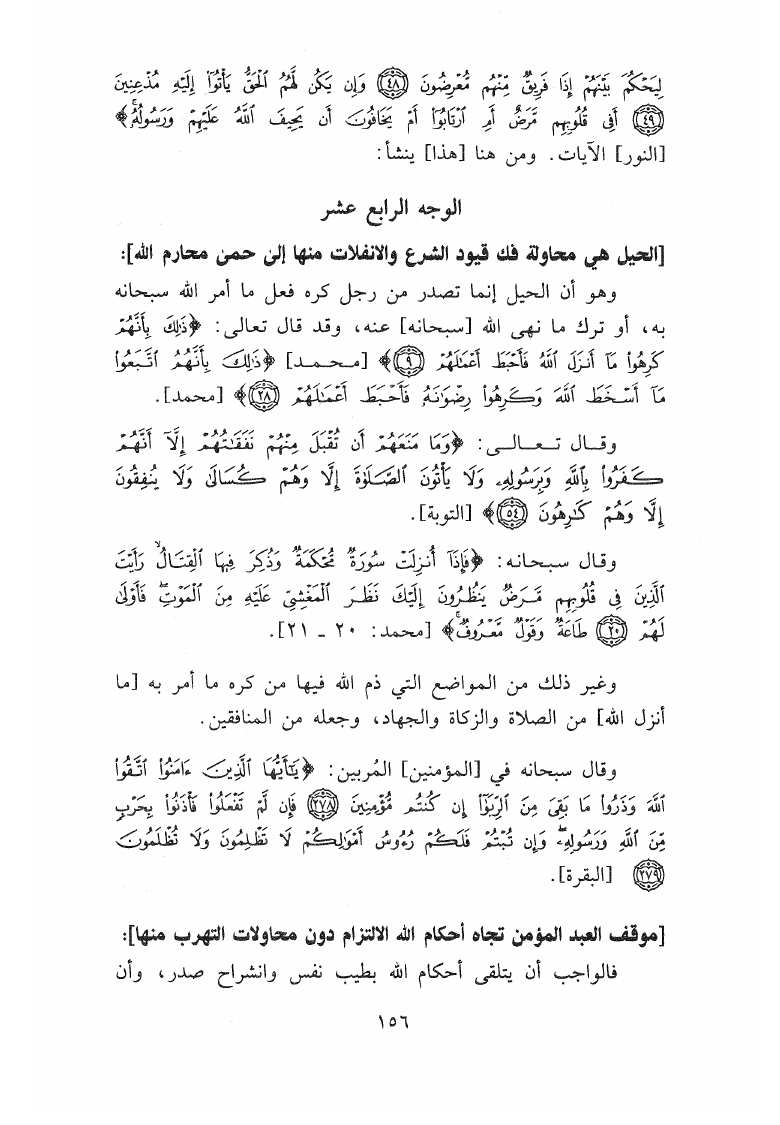 لِيَحْكُمَ بَيْنَهُمْ إِذَا فَرِيقٌ مِّنْهُم مُّعْرِضُونَ ﴿٤٨﴾ وَإِن يَكُن لَّهُمُ الْحَقُّ يَأْتُوٓاْ إِلَيْهِ مُذْعِنِينَ
﴿٤٩﴾ أَفِى قُلُوبِهِم مَّرَضٌ أَمِ ٱرْتَابُوٓاْ أَمْ يَخَافُونَ أَن يَحِيفَ ٱللَّهُ عَلَيْهِمْ وَرَسُولُهُۥ﴾
[النور] الآيات. ومن هنا [هذا] ينشأ:
الوجه الرابع عشر
[الحيل هي محاولة فك قيود الشرع والانفلات منها إلىٰ حمىٰ محارم الله]:
وهو أن الحيل إنما تصدر من رجل كره فعل ما أمر الله سبحانه
به، أو ترك ما نهى الله [سبحانه] عنه، وقد قال تعالى: ﴿ذَٰلِكَ بِأَنَّهُمْ
كَرِهُواْ مَآ أَنزَلَ ٱللَّهُ فَأَحْبَطَ أَعْمَٰلَهُمْ ﴿٩﴾﴾ [محمد] ﴿ذَٰلِكَ بِأَنَّهُمُ ٱتَّبَعُواْ
مَآ أَسْخَطَ ٱللَّهَ وَكَرِهُواْ رِضْوَٰنَهُۥ فَأَحْبَطَ أَعْمَٰلَهُمْ ﴿٢٨﴾﴾ [محمد].
وقال تعالى: ﴿وَمَا مَنَعَهُمْ أَن تُقْبَلَ مِنْهُمْ نَفَقَٰتُهُمْ إِلَّآ أَنَّهُمْ
كَفَرُواْ بِٱللَّهِ وَبِرَسُولِهِۦ وَلَا يَأْتُونَ ٱلصَّلَوٰةَ إِلَّا وَهُمْ كُسَالَىٰ وَلَا يُنفِقُونَ
إِلَّا وَهُمْ كَٰرِهُونَ ﴿٥٤﴾﴾ [التوبة].
وقال سبحانه: ﴿فَإِذَآ أُنزِلَتْ سُورَةٌ مُّحْكَمَةٌ وَذُكِرَ فِيهَا ٱلْقِتَالُ ۙ رَأَيْتَ
ٱلَّذِينَ فِى قُلُوبِهِم مَّرَضٌ يَنظُرُونَ إِلَيْكَ نَظَرَ ٱلْمَغْشِىِّ عَلَيْهِ مِنَ ٱلْمَوْتِ ۖ فَأَوْلَىٰ
لَهُمْ ﴿٢٠﴾ طَاعَةٌ وَقَوْلٌ مَّعْرُوفٌ ۚ﴾ [محمد: ٢٠ ـ ٢١].
وغير ذلك من المواضع التي ذم الله فيها من كره ما أمر به [ما
أنزل الله] من الصلاة والزكاة والجهاد، وجعله من المنافقين.
وقال سبحانه في [المؤمنين] المُربين: ﴿يَٰٓأَيُّهَا ٱلَّذِينَ ءَامَنُواْ ٱتَّقُواْ
ٱللَّهَ وَذَرُواْ مَا بَقِىَ مِنَ ٱلرِّبَوٰٓاْ إِن كُنتُم مُّؤْمِنِينَ ﴿٢٧٨﴾ فَإِن لَّمْ تَفْعَلُواْ فَأْذَنُواْ بِحَرْبٍ
مِّنَ ٱللَّهِ وَرَسُولِهِۦ ۖ وَإِن تُبْتُمْ فَلَكُمْ رُءُوسُ أَمْوَٰلِكُمْ لَا تَظْلِمُونَ وَلَا تُظْلَمُونَ
﴿٢٧٩﴾ [البقرة].
[موقف العبد المؤمن تجاه أحكام الله الالتزام دون محاولات التهرب منها]:
فالواجب أن يتلقى أحكام الله بطيب نفس وانشراح صدر، وأن
١٥٦